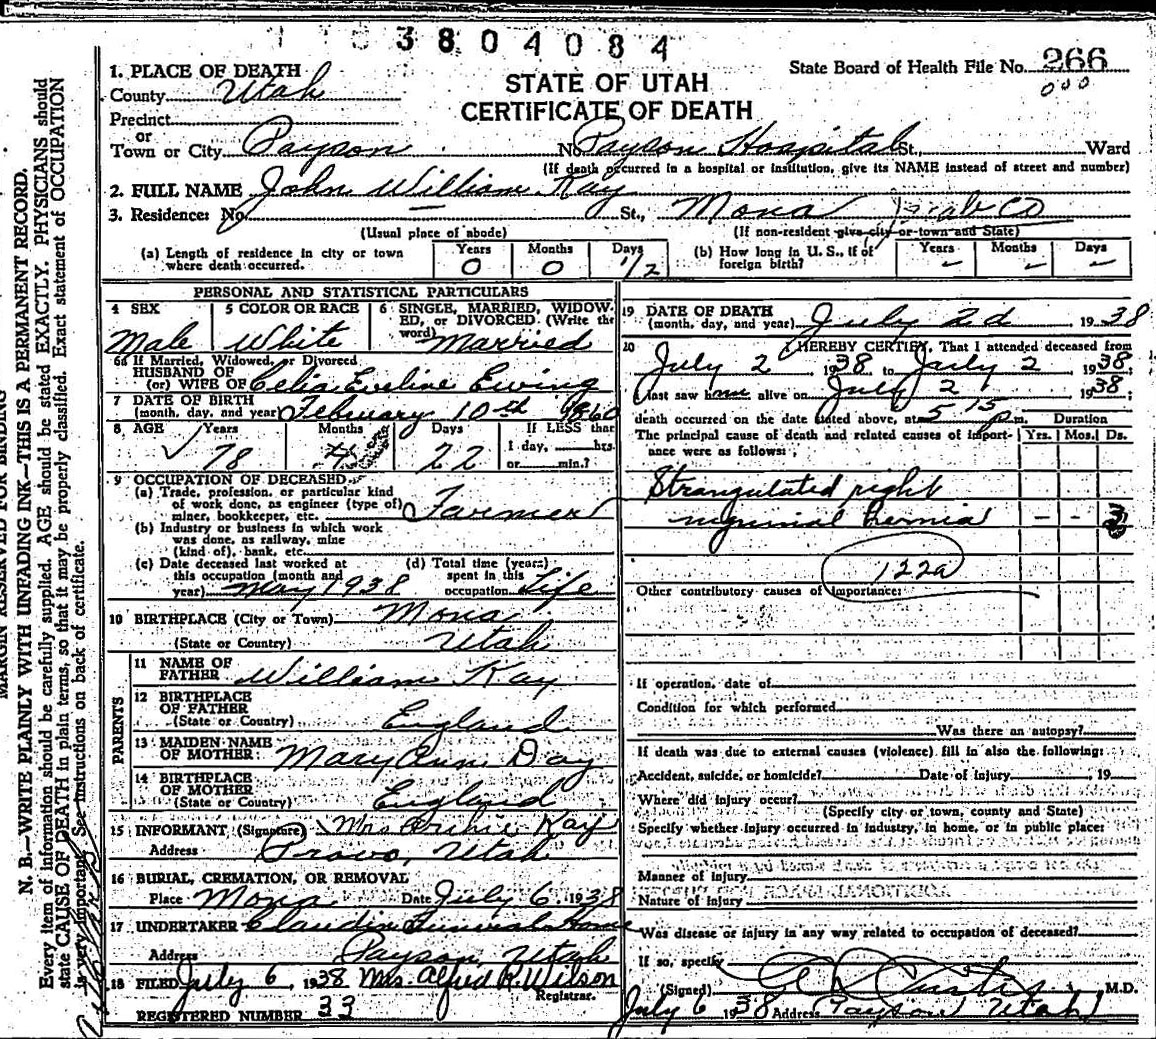 3804084
State Board of Health File No. 266
000
STATE OF UTAH
CERTIFICATE OF DEATH
1. PLACE OF DEATH
County Utah
Precinct
or
Town or City Payson No. Payson Hospital St., Ward
(If death occurred in a hospital or institution, give its NAME instead of street and number)
2. FULL NAME John William Kay
3. Residence: No. St., Mona Juab Co
(Usual place of abode) (If non-resident give city or town and State)
(a) Length of residence in city or town where death occurred. Years 0 Months 0 Days 1/2
(b) How long in U. S., if of foreign birth? Years – Months – Days –
PERSONAL AND STATISTICAL PARTICULARS
4 SEX Male
5 COLOR OR RACE White
6 SINGLE, MARRIED, WIDOWED, or DIVORCED. (Write the word) Married
6a If Married, Widowed, or Divorced
HUSBAND OF
(or) WIFE OF Celia Eveline Ewing
7 DATE OF BIRTH
(month, day, and year) February 10th 1860
8 AGE Years 78 Months 4 Days 22 If LESS than 1 day, hrs. or min.?
9 OCCUPATION OF DECEASED
(a) Trade, profession, or particular kind
of work done, as engineer (type of)
miner, bookkeeper, etc. Farmer
(b) Industry or business in which work
was done, as railway, mine
(kind of), bank, etc.
(c) Date deceased last worked at
this occupation (month and
year) May 1938
(d) Total time (years)
spent in this
occupation Life
10 BIRTHPLACE (City or Town) Mona
(State or Country) Utah
PARENTS
11 NAME OF
FATHER William Kay
12 BIRTHPLACE
OF FATHER
(State or Country) England
13 MAIDEN NAME
OF MOTHER Mary Ann Day
14 BIRTHPLACE
OF MOTHER
(State or Country) England
15 INFORMANT (Signature) Mrs Archie Kay
Address Provo, Utah
16 BURIAL, CREMATION, OR REMOVAL
Place Mona Date July 6 1938
17 UNDERTAKER Claudin Funeral Home
Address Payson, Utah
18 FILED July 6, 1938 Mrs. Alfred R. Wilson
Registrar.
REGISTERED NUMBER 33
19 DATE OF DEATH
(month, day, and year) July 2d 1938
20 I HEREBY CERTIFY, That I attended deceased from
July 2 1938 to July 2 1938;
I last saw him alive on July 2 1938;
death occurred on the date stated above, at 5 15 p m. Duration
The principal cause of death and related causes of importance were as follows: Yrs. Mos. Ds.
Strangulated right
inguinal hernia – – 3
122a
Other contributory causes of importance:
If operation, date of
Condition for which performed
Was there an autopsy?
If death was due to external causes (violence) fill in also the following:
Accident, suicide, or homicide? Date of injury 19
Where did injury occur?
(Specify city or town, county and State)
Specify whether injury occurred in industry, in home, or in public place:
Manner of injury
Nature of injury
Was disease or injury in any way related to occupation of deceased?
If so, specify
(Signed) Curtis M.D.
July 6 1938 Address Payson Utah
MARGIN RESERVED FOR BINDING
N. B.—WRITE PLAINLY WITH UNFADING INK—THIS IS A PERMANENT RECORD.
Every item of information should be carefully supplied. AGE should be stated EXACTLY. PHYSICIANS should
state CAUSE OF DEATH in plain terms, so that it may be properly classified. Exact statement of OCCUPATION
is very important. See instructions on back of certificate.